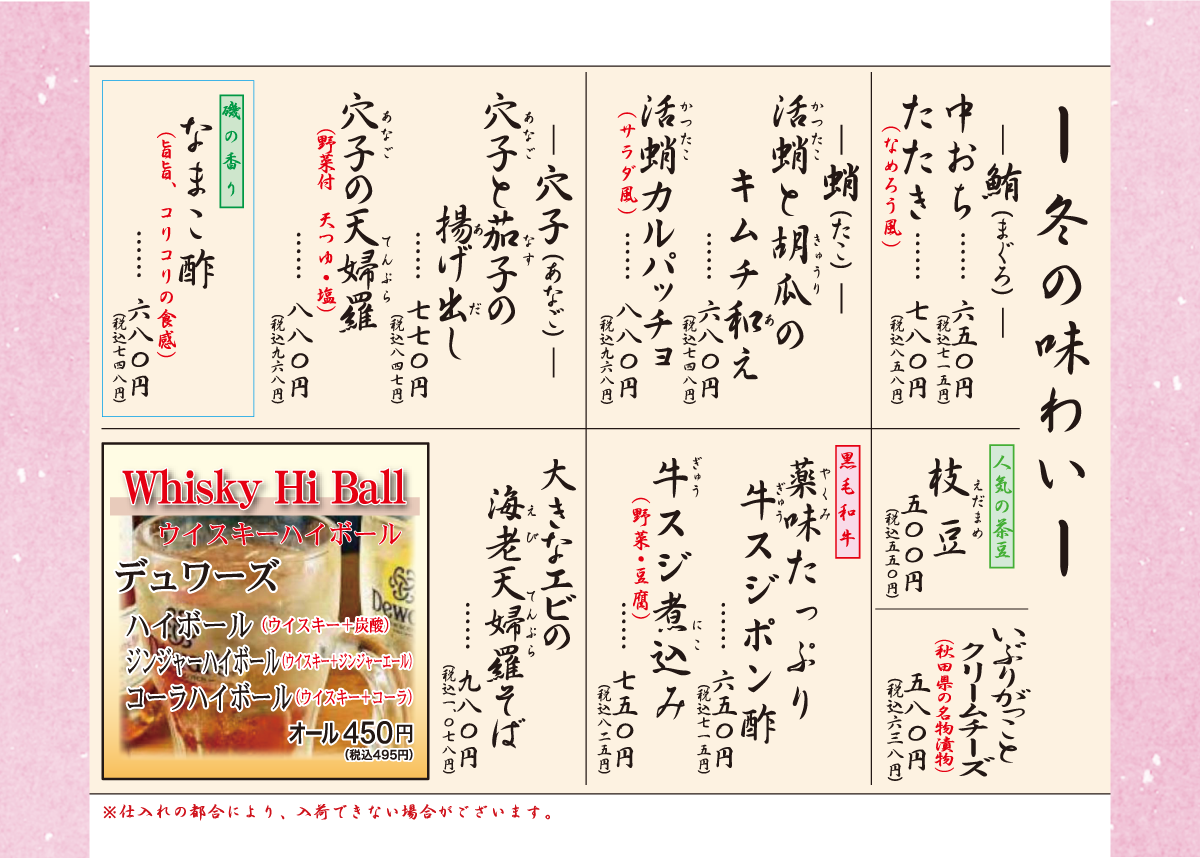 ー冬の味わいー
―鮪(まぐろ)―
中おち……六五〇円
(税込七一五円)
たたき……七八〇円
(なめろう風)
(税込八五八円)
―蛸(たこ)―
活蛸と胡瓜の
キムチ和え
……六八〇円
(税込七四八円)
活蛸カルパッチョ
(サラダ風)
……八八〇円
(税込九六八円)
―穴子(あなご)―
穴子と茄子の
揚げ出し
……七七〇円
(税込八四七円)
穴子の天婦羅
(野菜付 天つゆ・塩)
……八八〇円
(税込九六八円)
磯の香り
なまこ酢
(旨旨、コリコリの食感)
……六八〇円
(税込七四八円)
人気の茶豆
枝豆
五〇〇円
(税込五五〇円)
いぶりがっこと
クリームチーズ
(秋田県の名物漬物)
五八〇円
(税込六三八円)
黒毛和牛
薬味たっぷり
牛スジポン酢
……六五〇円
(税込七一五円)
牛スジ煮込み
(野菜・豆腐)
……七五〇円
(税込八二五円)
大きなエビの
海老天婦羅そば
……九八〇円
(税込一、〇七八円)
Whisky Hi Ball
ウイスキーハイボール
デュワーズ
ハイボール(ウイスキー+炭酸)
ジンジャーハイボール(ウイスキー+ジンジャーエール)
コーラハイボール(ウイスキー+コーラ)
オール450円
(税込495円)
※仕入れの都合により、入荷できない場合がございます。